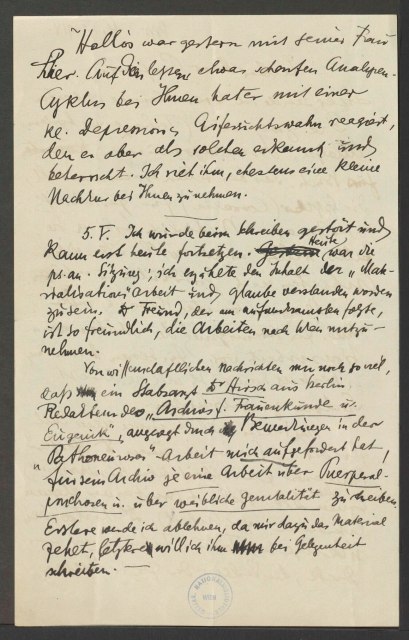 Hollós war gestern mit seiner Frau
hier. Auf den letzten etwas scharfen Analysen-
Cyklus bei Ihnen hat er mit einer
kl. Depression u. Eifersuchtswahn reagiert,
den er aber als solchen erkannt und
beherrscht. Ich riet ihm, ehestens eine kleine
Nachkur bei Ihnen zu nehmen.
5. V. Ich wurde beim Schreiben gestört und
kann erst heute fortsetzen. Gestern Heute war die
ps.an. Sitzung; ich erzählte den Inhalt der „Mate-
rialisations"arbeit und glaube verstanden worden
zu sein. Dr Freund, der am aufmerksamsten folgte,
ist so freundlich, die Arbeiten nach Wien mitzu-
nehmen.
Von wissenschaftlichen Nachrichten nur noch so viel,
daß ein Stabsarzt Dr Hirsch aus Berlin
Redakteur des „Archivs f. Frauenkunde u.
Eugenik", angeregt durch Bemerkungen in der
„Pathoneurosen"-Arbeit mich aufgefordert hat,
für sein Archiv je eine Arbeit über Puerperal-
psychosen u. über weibliche Genitalität zu schreiben.
Erstere werde ich ablehnen, da mir dazu das Material
fehlt, letztere will ich ihm bei Gelegenheit
schreiben. —
WIEN